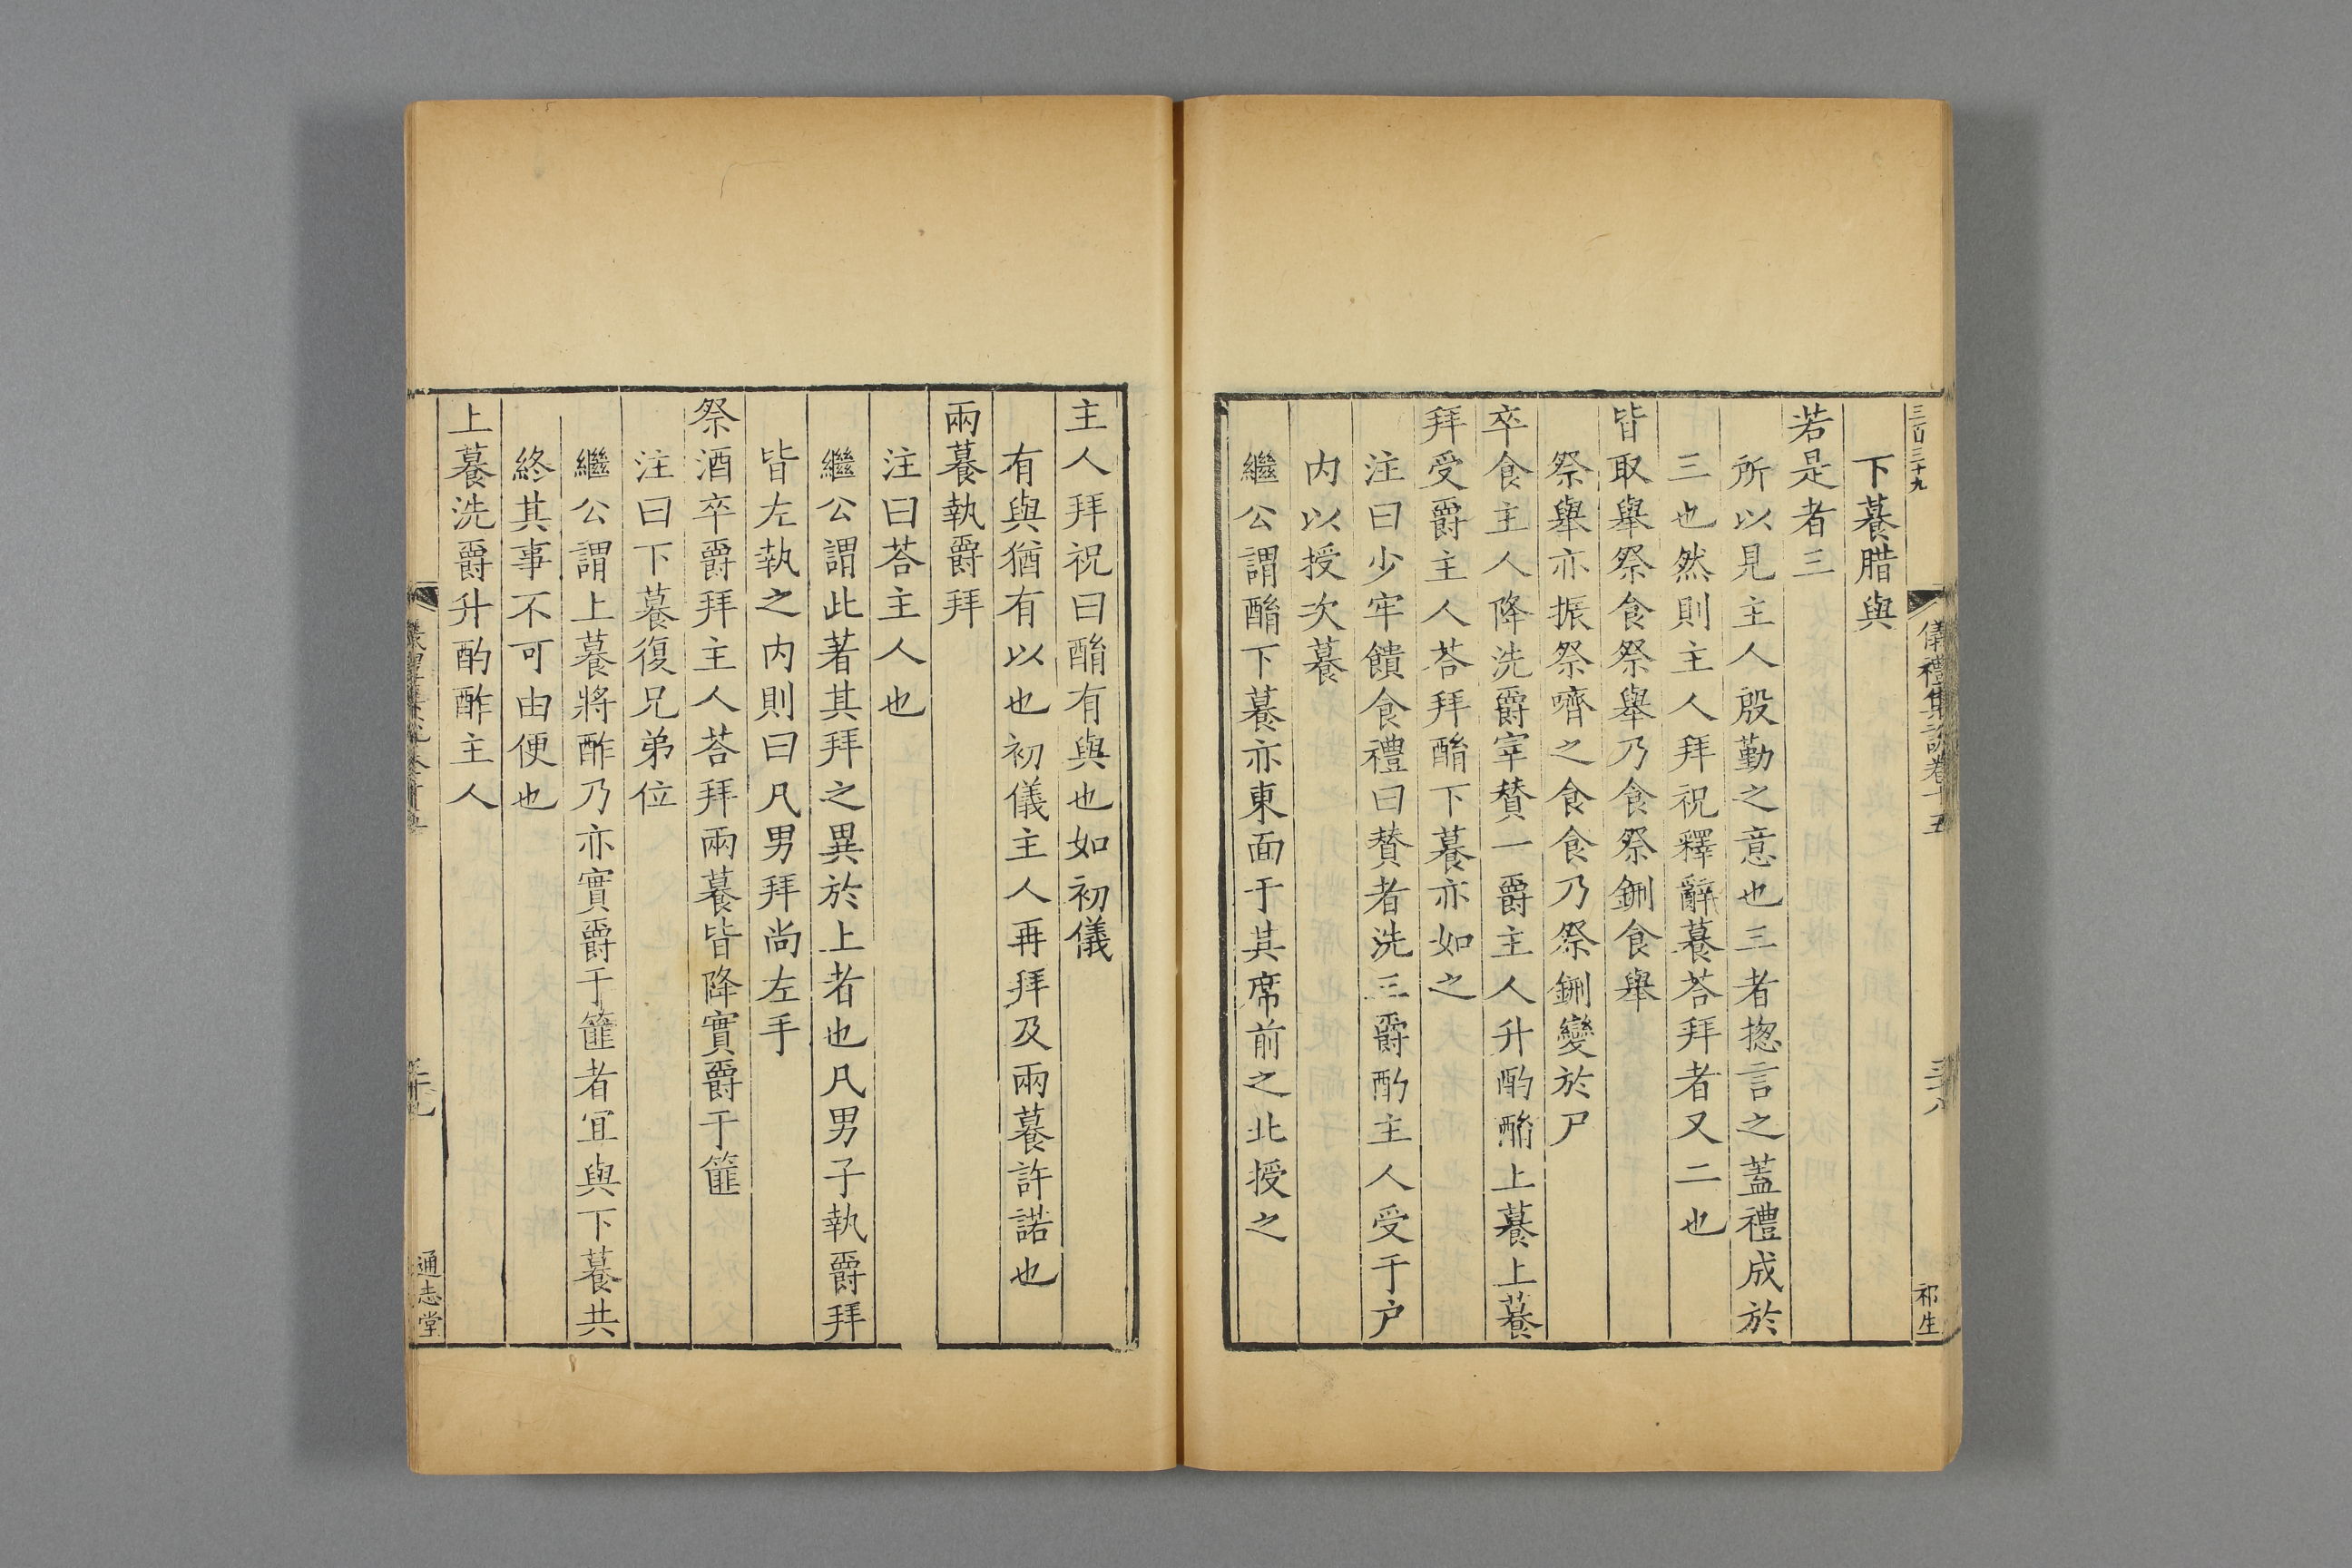 三百三十九
儀禮集說卷十五
三十八
祁生
下䬫腊與
若是者三
所以見主人殷勤之意也三者揔言之蓋禮成於
三也然則主人拜祝釋辭䬫荅拜者又二也
皆取舉祭食祭舉乃食祭鉶食舉
祭舉亦振祭嚌之食食乃祭鉶變於尸
卒食主人降洗爵宰賛一爵主人升酌酳上䬫上䬫
拜受爵主人荅拜酳下䬫亦如之
注曰少牢饋食禮曰賛者洗三爵酌主人受于户
内以授次䬫
繼公謂酳下䬫亦東面于其席前之北授之
主人拜祝曰酳有與也如初儀
有與猶有以也初儀主人再拜及兩䬫許諾也
兩䬫執爵拜
注曰荅主人也
繼公謂此著其拜之異於上者也凡男子執爵拜
皆左執之内則曰凡男拜尚左手
祭酒卒爵拜主人荅拜兩䬫皆降實爵于篚
注曰下䬫復兄弟位
繼公謂上䬫將酢乃亦實爵于篚者宜與下䬫共
終其事不可由便也
上䬫洗爵升酌酢主人
通志堂